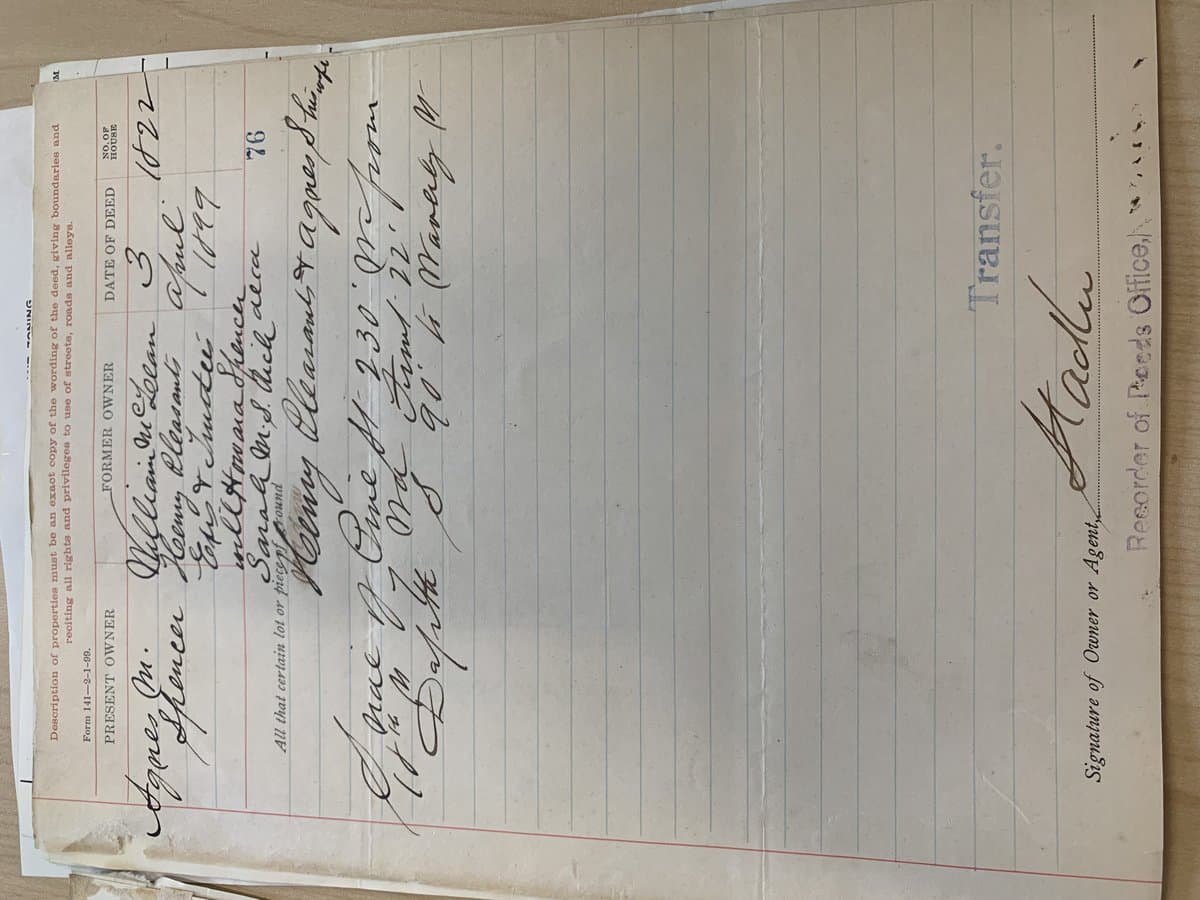 Description of properties must be an exact copy of the wording of the deed, giving boundaries and
reciting all rights and privileges to use of streets, roads and alleys.
Form 141—2-1-99.
PRESENT OWNER FORMER OWNER DATE OF DEED NO. OF HOUSE
Agnes M. William McLean 3 1822
Spencer Henry Pleasants april
Exrs & Trustees 1899
will Howard Spencer
Sarah M. S. decd
76
All that certain lot or piece of ground
Henry Pleasants & agnes S his wife
S side of Pine St 230' W from
18th St Wd Front 22'
Depth S 90' to Waverly St
Transfer.
Signature of Owner or Agent,
Recorder of Deeds Office,